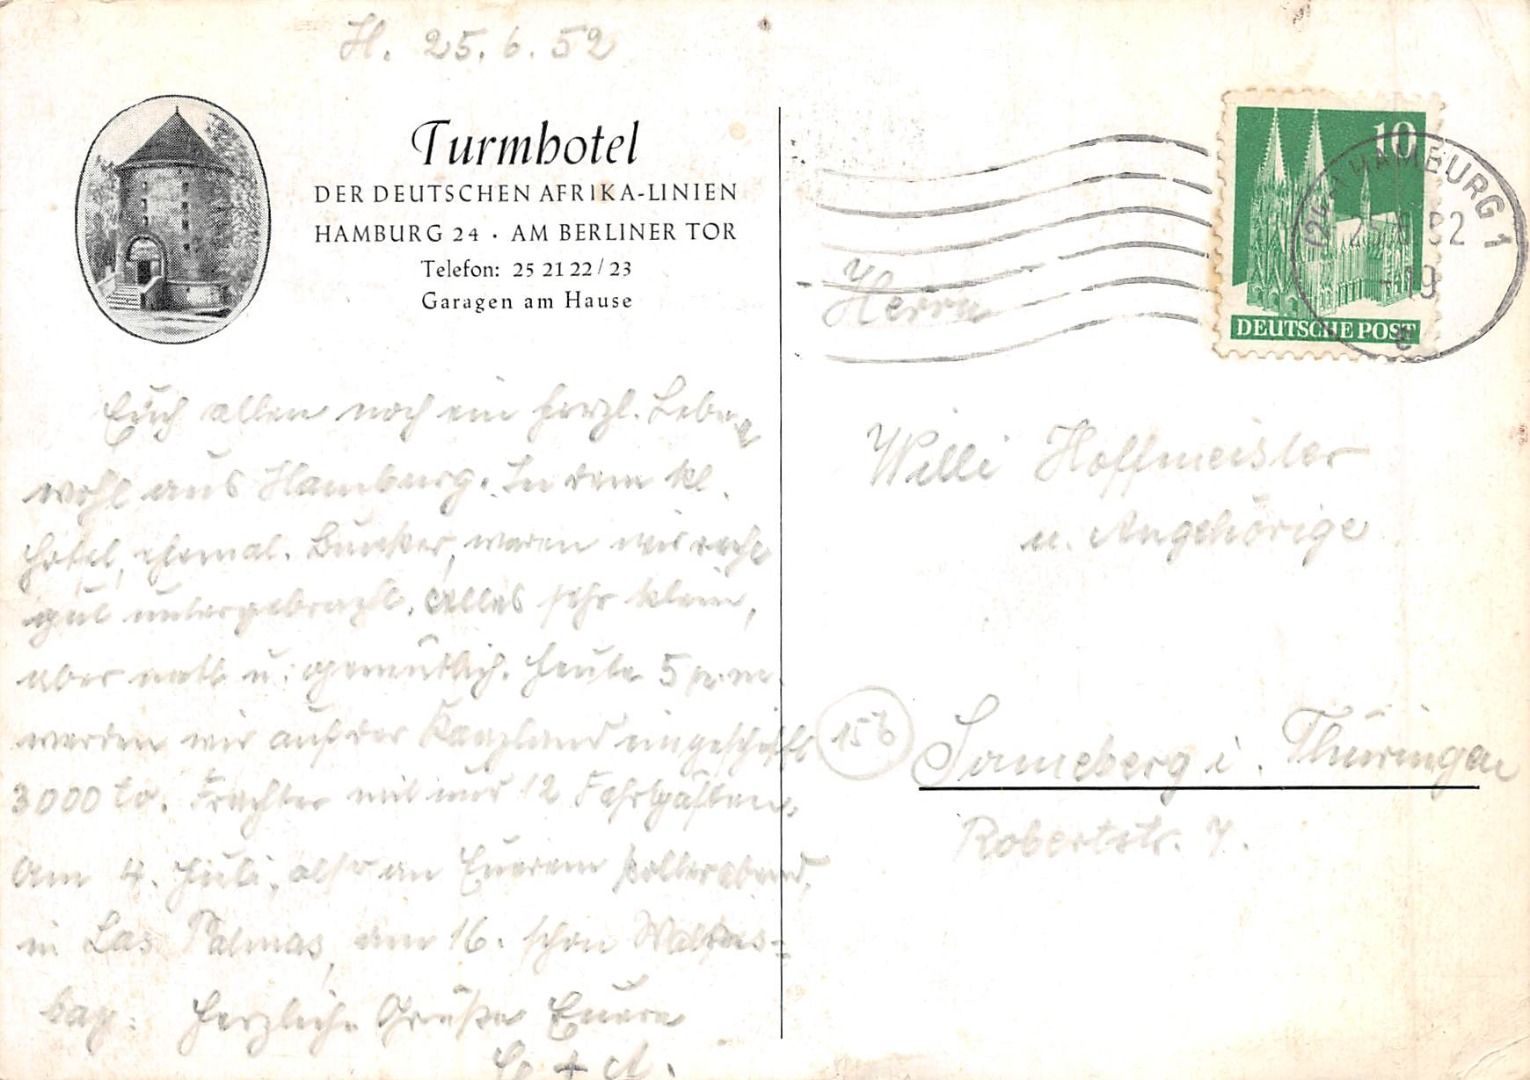 H. 25.6.52
Turmhotel
DER DEUTSCHEN AFRIKA-LINIEN
HAMBURG 24 · AM BERLINER TOR
Telefon: 25 21 22 / 23
Garagen am Hause
Euch allen noch ein herzl. Lebe
wohl aus Hamburg. In dem kl.
Hotel, ehemal. Bunker, waren wir recht
gut untergebracht. Alles sehr klein,
aber nett u. gemütlich. Heute 5 p.m.
werden wir auf der Kanzland eingeschifft
3000 to. Frachter mit nur 12 Fahrgästen.
Am 4. Juli, also an Eurem Polterabend,
in Las Palmas, am 16. schon Walfis-
bay. Herzliche Grüße Eure
+ A.
10
DEUTSCHE POST
(24a) HAMBURG 1
25.6.52
-19
Herrn
Willi Hoffmeister
u. Angehörige
15b
Sonneberg i. Thüringen
Robertstr. 7.